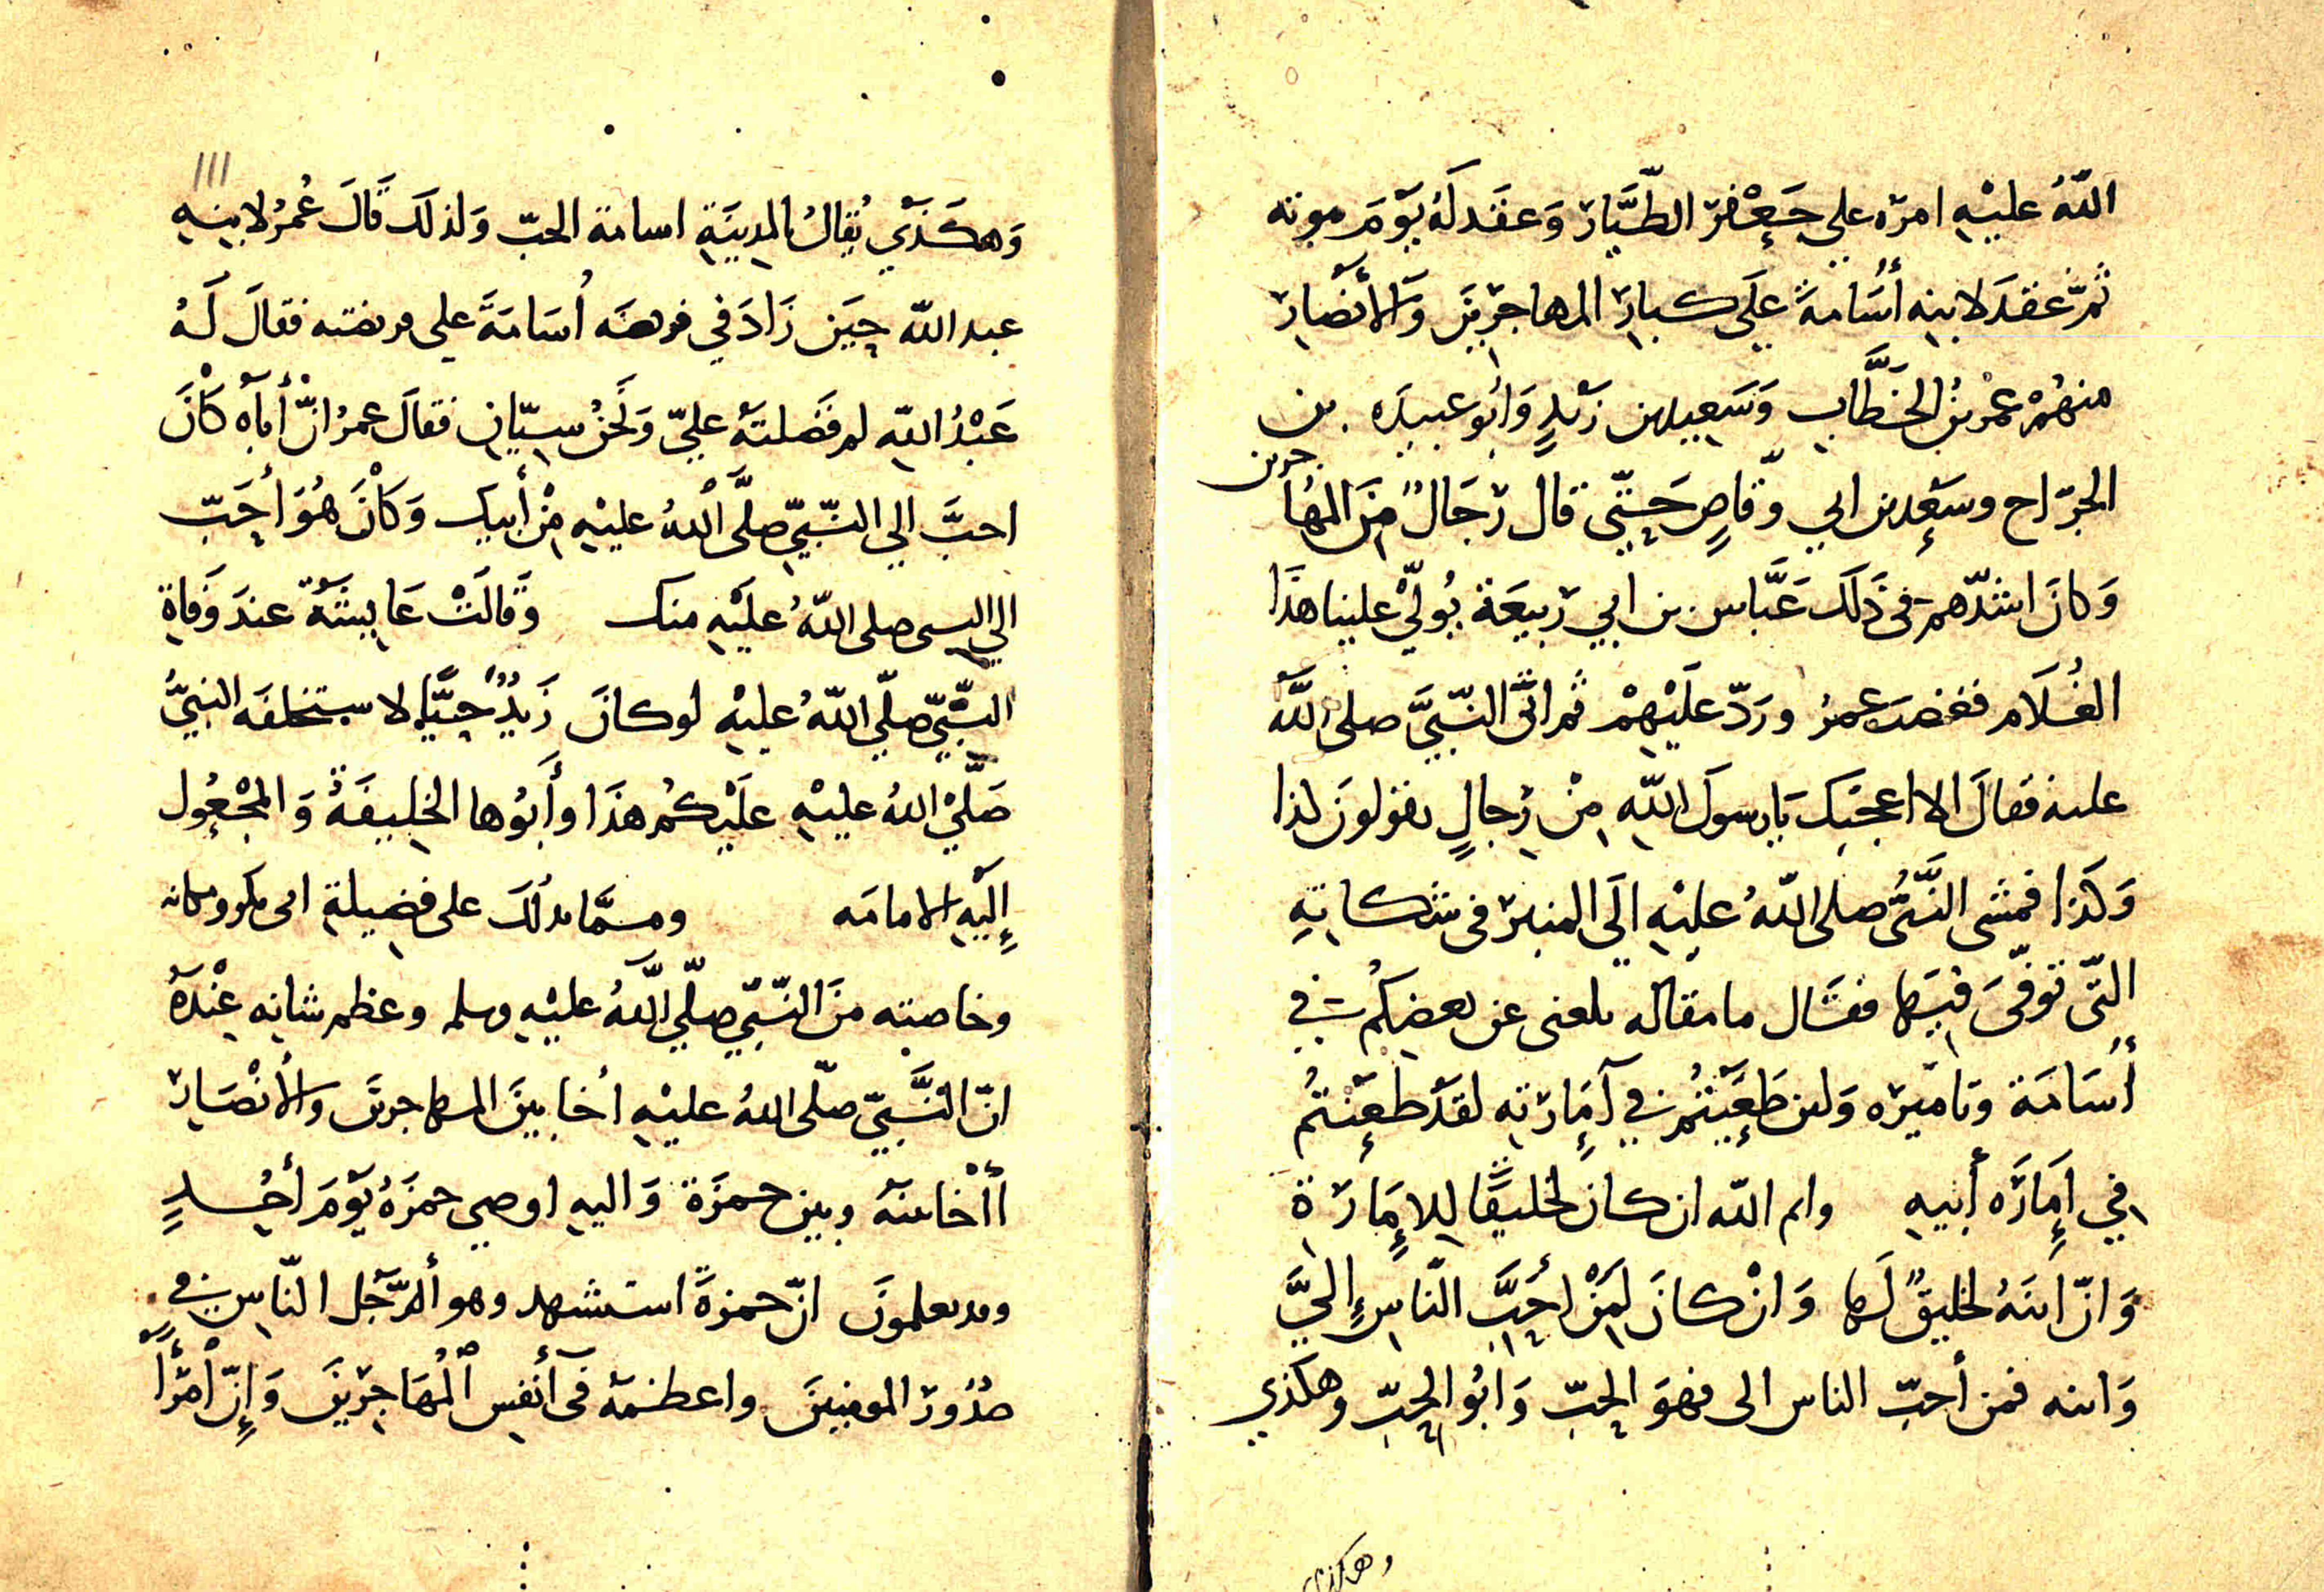 اللّهُ عليْهِ امرّه علي جَعْفرَ الطّيّار وَعقَد لَهُ يَوْمَ موته
ثمّ عقدَ لابنِه أُسَامةَ عَلَى كبارِ المهاجرِينَ وَالأَنْصارِ
منهُمْ عمْر بْنُ الخَطَّابِ وَسَعِيد بن زَيْدٍ وَأَبُو عبيدَه بن
الجرّاح وسَعْد بن ابي وقّاصٍ حَتّى قال رَجَالٌ مِنَ المُهَاجرين
وَكانَ اشدّهم فى ذَلَك عَبَّاس بن ابي رَبيعَة يُولّي علينا هذَا
الغُلَام فغضبَ عمرُ وردّ عَلَيْهِمْ ثم اتَى النّبِيَّ صلى اللَّه
عليه فقالَ الا اعجبَك يَا رسولَ اللّهِ مِنْ رِجالٍ يقولونَ لذا
وَكَذا فمشى النَّبيُّ صلى اللّهُ عليْهِ الَى المنبر فى شكاتِهِ
التّى تُوفّىَ فيَها فقَال ما مقاله بلغنى عن بعضِكُم فِي
أُسَامَة وتاميره وَلئن طَعَنْتُم فِي إِمَارَتِه لقدْ طعَنْتُم
في إِمَارَه أَبيهِ وايم اللّه ان كان لخليقًا لِلإِمَارَةِ
وَانّ ابنَهُ لخليقٌ لَها وَانْ كانَ لمِنْ أَحَبَّ النّاسِ إليَّ
وَابنه فمن أحبّ الناس الى فهوَ الحِبّ وَابُو الحِبّ وهكذي
وهكذي
111
وَهكَذَي يُقالُ بالمدِينَةِ اسامة الحبّ وَلذلَك قَالَ عُمرُ لابنِهِ
عبد اللّه حِيَن زَادَ في فرضَه أُسَامَةَ على فريضته فقالَ لَهُ
عَبْدُ اللّهِ لم فَضَلتَهُ عليّ وَنَحْنُ سِيّانِ فقالَ عمرُ انّ أَباَه كَانَ
احبَّ الي النّبِيّ صلَّى اللّهُ عليْهِ مِنْ أَبيك وَكَانَ هُوَ أَحَبّ
الي النبى صلى اللّهُ عليْهِ منك وَقَالَتْ عَايِشَةُ عندَ وَفاةِ
النّبِيّ صلّي اللّهُ عليْهِ لو كانَ زَيْدٌ حَيًّا لا ستخلفَه النبيُّ
صَلَّيْ اللّهُ عليْهِ علَيْكُم هذَا وأَبُوها الخلِيفَةُ وَالمجْعُول
إِلَيْهِ الامامَه وممَّا يدلّكَ على فضِيلة ابى بكر ومكانه
وخاصته منَ النّبِيّ صلّي اللّهُ عليْهِ وسلم وعظم شانِه عِنْدَهُ
انّ النَّبِيّ صلّى اللهُ عليْهِ أخا بينَ المهاجرِينَ وَالأَنْصَار
أأخا بينَهُ وبين حمزَة وَاليهِ اوصي حمزَةُ يَوْمَ أُحُدٍ
وقد يعلمونَ انّ حمزةَ استشهد وهو أَلرّجَل النّاسِ فِي
صدُور المومنينَ واعظمَهُ فى أَنفسِ المُهاجِرِينَ وَإِنّ امْرَأً